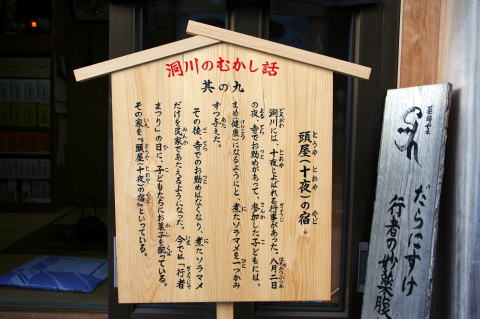 洞川のむかし話
其の九
頭屋(十夜)の宿
洞川には、十夜とよばれる行事があった。八月二日
の夜、寺でお勤めがあって、参加した子どもには、
まめ(健康)になるようにと、煮たソラマメを一つかみ
ずつ与えた。
その後、寺でのお勤めはなくなり、煮たソラマメ
だけを民家であたえるようになった。今では「行者
まつり」の日に、子どもたちにお菓子を配っている。
その家を『頭屋(十夜)の宿』といっている。
だらにすけ
行者の妙薬腹